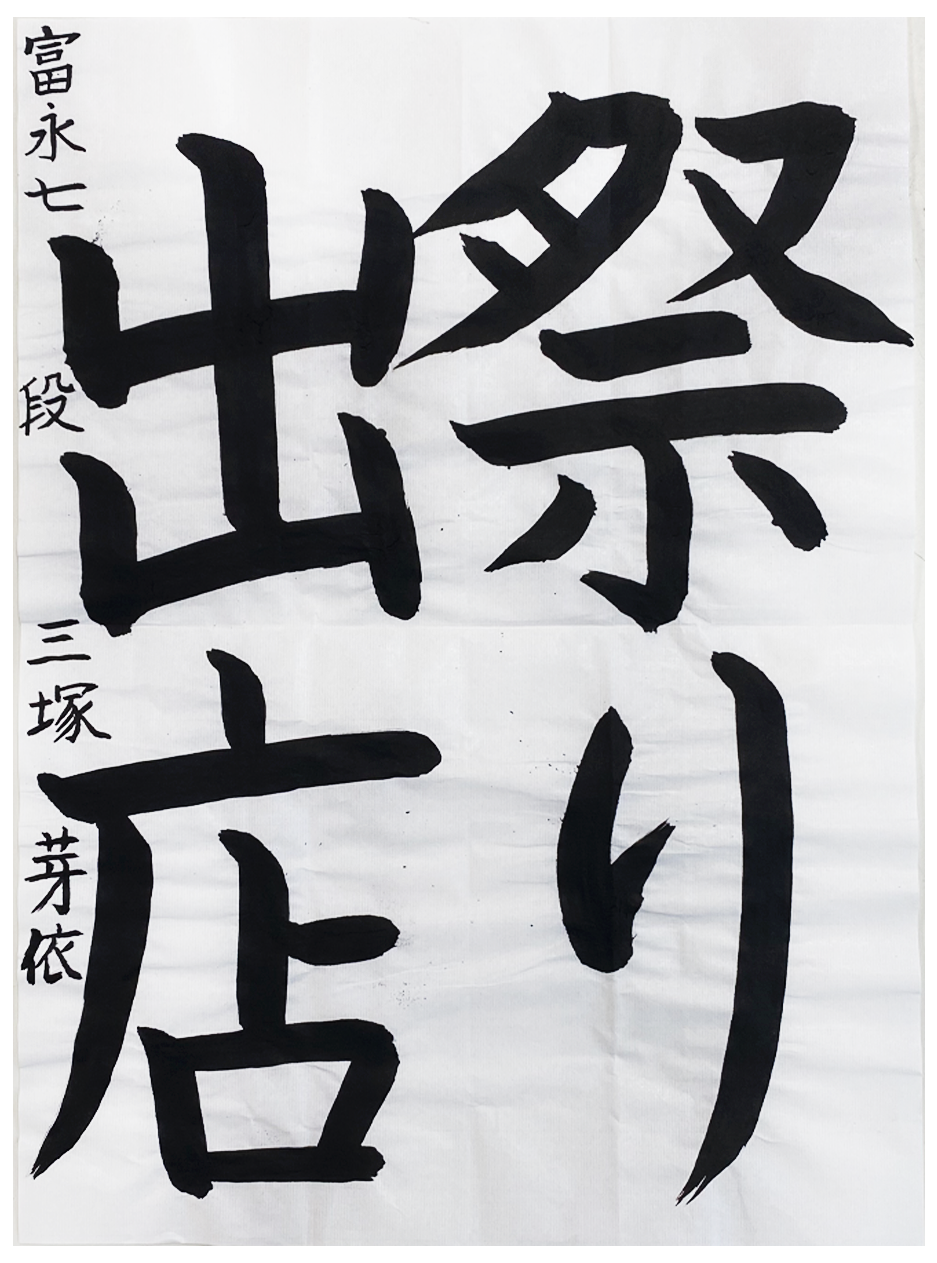 祭り
出店
富永七 段 三塚 芽依